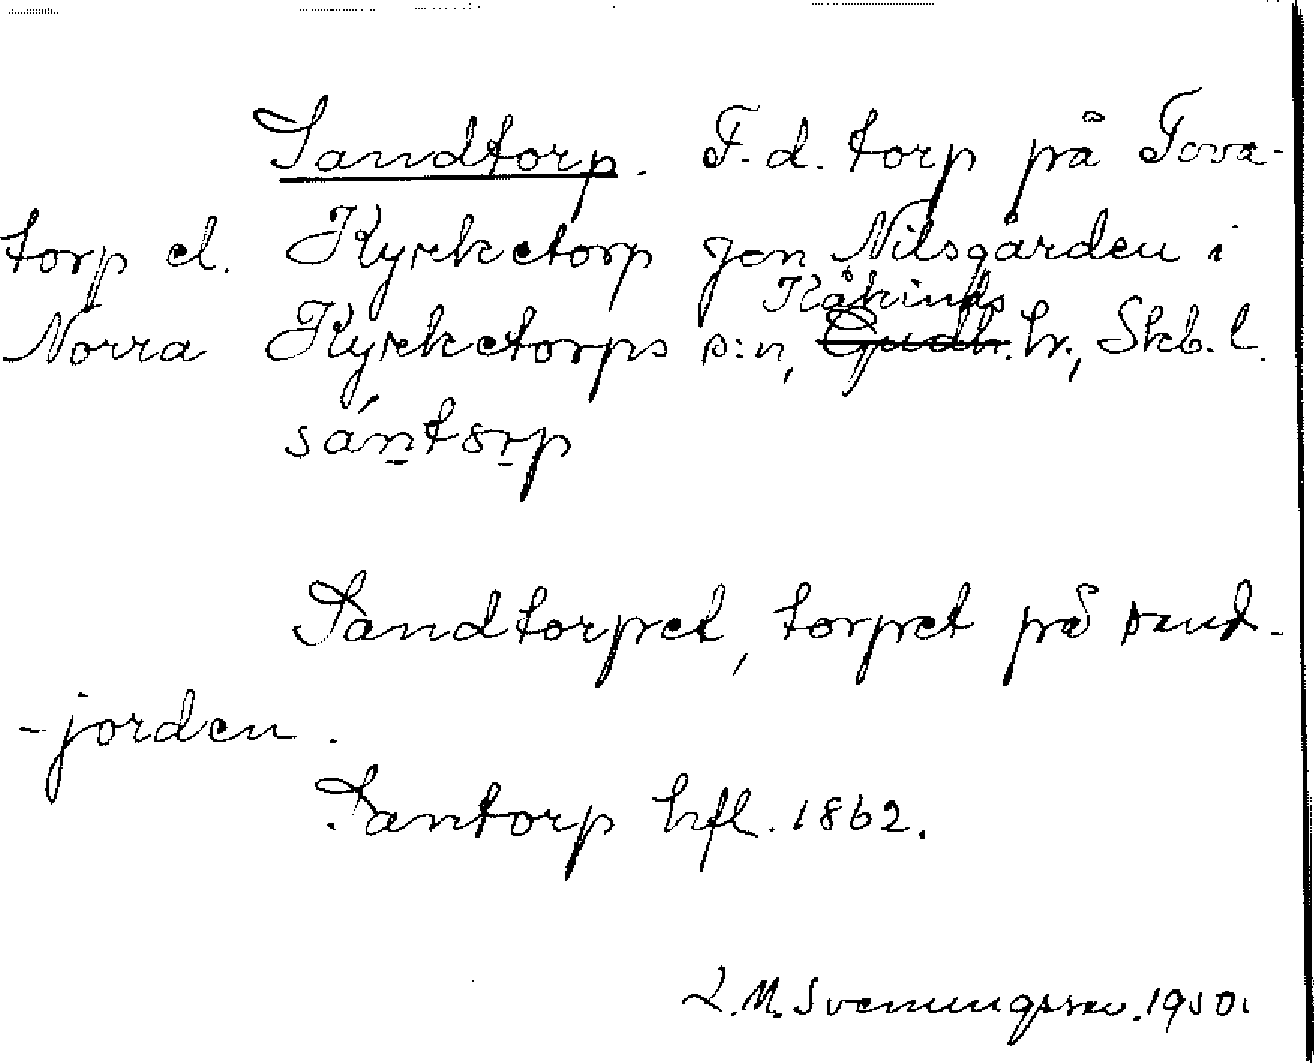 Sandtorp. F.d. torp på Tova-
torp el. Kyrketorp gen Nilsgården i
Kåkinds
Norra Kyrketorps s:n, Gudh. hr., Skb. l.
sántorp
Sandtorpet, torpet på sand-
-jorden.
Santorp hfl. 1862.
L.M. Svenungsson. 1950.